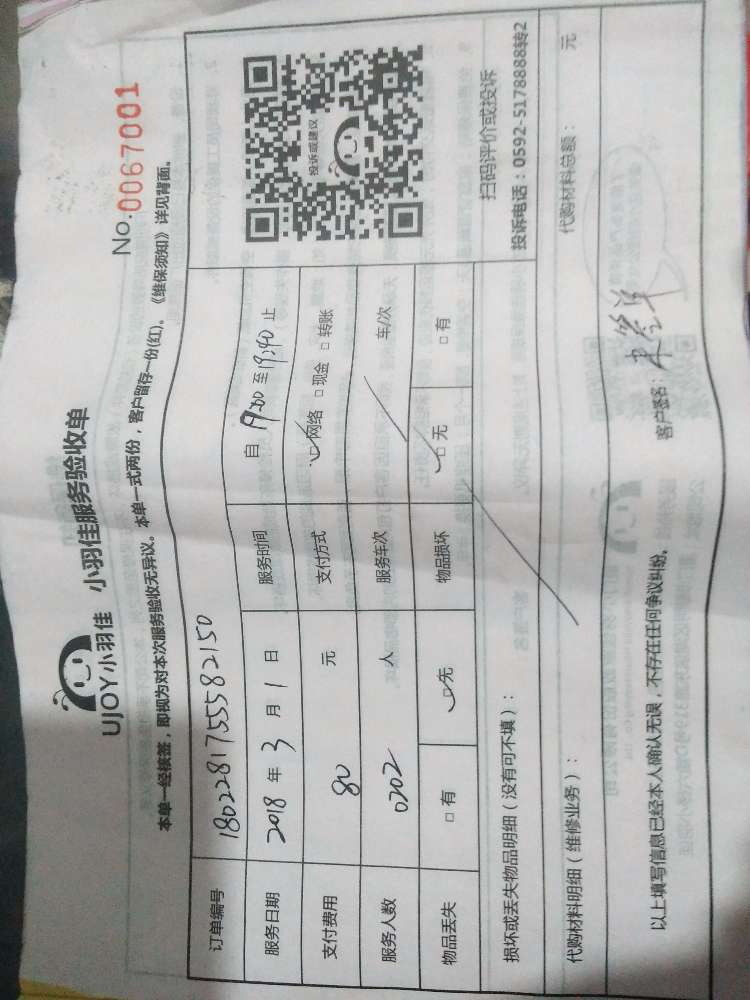 UJOY小羽佳 小羽佳服务验收单
No.0067001
本单一经核签，即视为对本次服务验收无异议。本单一式两份，客户留存一份(红)。《维保须知》详见背面。
订单编号 1802281755582150
服务日期 2018年3月1日 服务时间 自19:00至19:40止
支付费用 80 元 支付方式 □网络 □现金 □转账
服务人数 0202 人 服务车次 车/次
物品丢失 □有 □无 物品损坏 □无 □有
投诉或建议
扫码评价或投诉
投诉电话：0592-5178888转2
损坏或丢失物品明细（没有可不填）：
代购材料明细（维修业务）： 代购材料总额： 元
以上填写信息已经本人确认无误，不存在任何争议纠纷。 客户签名：